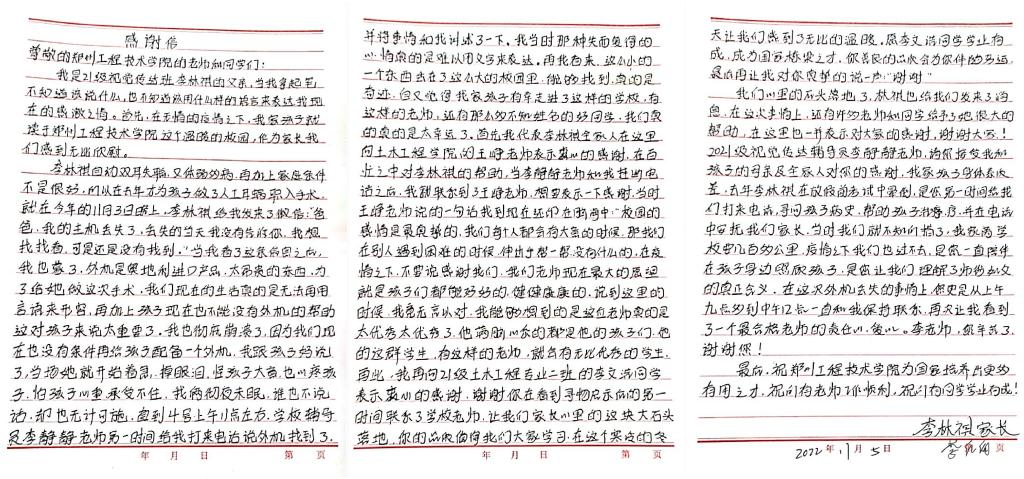 感谢信
尊敬的郑州工程技术学院的老师和同学们：
我是21级视觉传达班李林祺的父亲，当我拿起笔，
不知道该说什么，也不知道该用什么样的语言来表达我现
在的感激之情。首先，在无情的疫情之下，我家孩子就
读于郑州工程技术学院这个温暖的校园，作为家长我
们感到无比欣慰。
李林祺自幼双耳失聪，又体弱多病，再加上家庭条件
不是很好，所以在去年才为孩子做了人工耳蜗植入手术，
就在今年的11月3日晚上，李林祺给我发来了微信：“爸
爸，我的主机丢失了，丢失的当天我没有告诉你，我想
找找看，可是还是没有找到。”当我看了这条信息之后，
我也蒙了，外机是奥地利进口产品，太昂贵的东西，为
了给她做这次手术，我们现在的生活真的是无法再用
言语来形容，再加上孩子现在也不能没有外机的帮助
这对孩子来说太重要了。我也彻底崩溃了，因为我们现
在也没有条件再给孩子配备一个外机，我跟孩子妈说
了，当场她就开始着急，掉眼泪，怪孩子大意，也心疼孩
子，怕孩子心里承受不住，我俩彻夜未眠，谁也不说
话，却也无计可施，直到4号上午11点左右，学校辅导
员李静静老师第一时间给我打来电话说外机找到了，
年 月 日 第 页
并将事情和我讲述了一下。我当时那种失而复得的
心情真的是难以用文字来表达。再我看来，这么小的
一个东西丢在了这么大的校园里，能够找到真的是
奇迹，但又觉得我家孩子有幸走进了这样的学校，有
这样的老师，还有那么多不知姓名的好同学，我们真
的真的是太幸运了。首先我代表李林祺全家人在这里
向土木工程学院的王峰老师表示衷心的感谢，在百
忙之中对李林祺的帮助，当李静静老师和我挂断电
话之后，我就联系到了王峰老师，想要表示一下感谢，当时
王峰老师说的一句话我到现在还印在脑海中：“校园的
感情是最真挚的，我们每个人都会有大意的时候，那我们
在别人遇到困难的时候，伸出手帮一帮没有什么的，在疫
情之下，不要说感谢我们，我们老师现在最大的愿望
就是孩子们都能好好的，健健康康的，说到这里的
时候，我竟无言以对，我能够想到的是这位老师真的是
太优秀太优秀了，他满脑心系的都是他的孩子们，他
的这群学生，有这样的老师，就会有无比优秀的学生。
再此，我再向21级土木工程专业二班的李文浩同学
表示衷心的感谢，谢谢你在看到寻物启示后的第一
时间联系了学校老师，让我们家长心里的这块大石头
落地，你的品质值得我们大家学习，在这个寒冷的冬
年 月 日 第 页
天让我们感到了无比的温暖。愿李文浩同学学业有
成，成为国家栋梁之才，你善良的品质会为你伴的多远，
最后再让我对你真挚的说一声“谢谢”
我们心里的石头落地了，林祺也给我们发来了消
息，在这次事情上，还有许多老师和同学给予了她很大的
帮助，在这里也一并表示对大家的感谢，谢谢大家！
2021级视觉传达辅导员李静静老师，请你接受我和
孩子的母亲及全家人对你的感谢，我家孩子身体素质
差，去年李林祺在放假前考试中晕倒，是你第一时间给我
们打来电话，寻问孩子病史，帮助孩子治疗，并在电话
中安抚我们家长，当时我们就不知所措了，我家离学
校要几百多公里，疫情之下我们也过不去，是您一直陪伴
在孩子身边照顾孩子，是您让我们理解了师爱如父
的真正含义，在这次外机丢失的事情上，你更是从上午
九点多到中午12点一直和我保持联系，再次让我看到
了一个最合格老师的责任心，爱心。李老师，你辛苦了，
谢谢您！
最后，祝郑州工程技术学院为国家培养出更多的
有用之才，祝所有老师工作顺利，祝所有同学学业有成！
李林祺家长
2022年11月5日 页